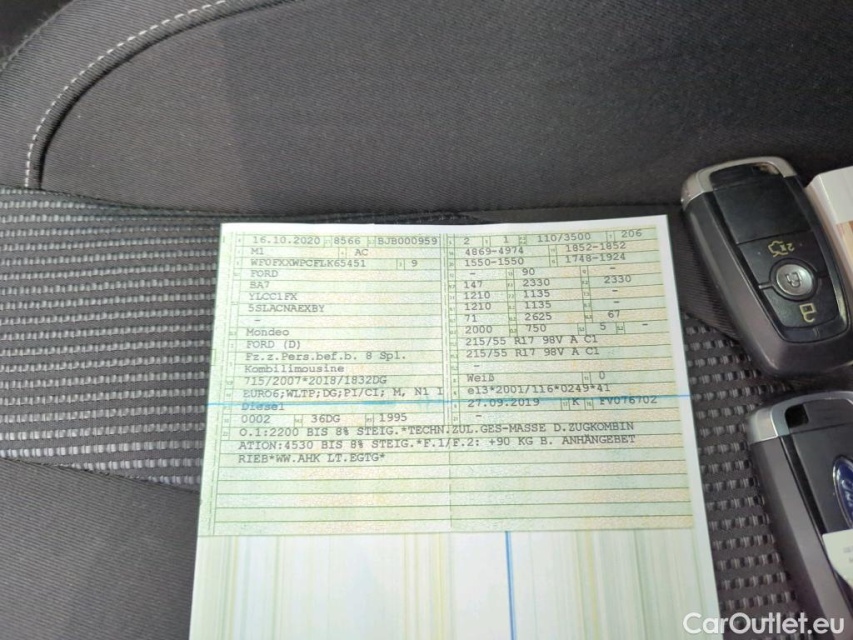 16.10.2020 8566 BJB000959 2 1 110/3500 206
M1 AC 4869-4974 1852-1852
WF0FXXWPCFLK65451 9 1550-1550 1748-1924
FORD - 90 -
BA7 147 2330 2330
YLCC1FX 1210 1135 -
5SLACNAEXBY 1210 1135 -
- 71 2625 67
Mondeo 2000 750 5 -
FORD (D) 215/55 R17 98V A C1
Fz.z.Pers.bef.b. 8 Spl. 215/55 R17 98V A C1
Kombilimousine -
715/2007*2018/1832DG Weiß 0
EURO6;WLTP;DG;PI/CI; M, N1 I e13*2001/116*0249*41
Diesel 27.09.2019 K FV076702
0002 36DG 1995 -
O.1:2200 BIS 8% STEIG.*TECHN.ZUL.GES-MASSE D.ZUGKOMBIN
ATION:4530 BIS 8% STEIG.*F.1/F.2: +90 KG B. ANHÄNGEBET
RIEB*WW.AHK LT.EGTG*
CarOutlet.eu